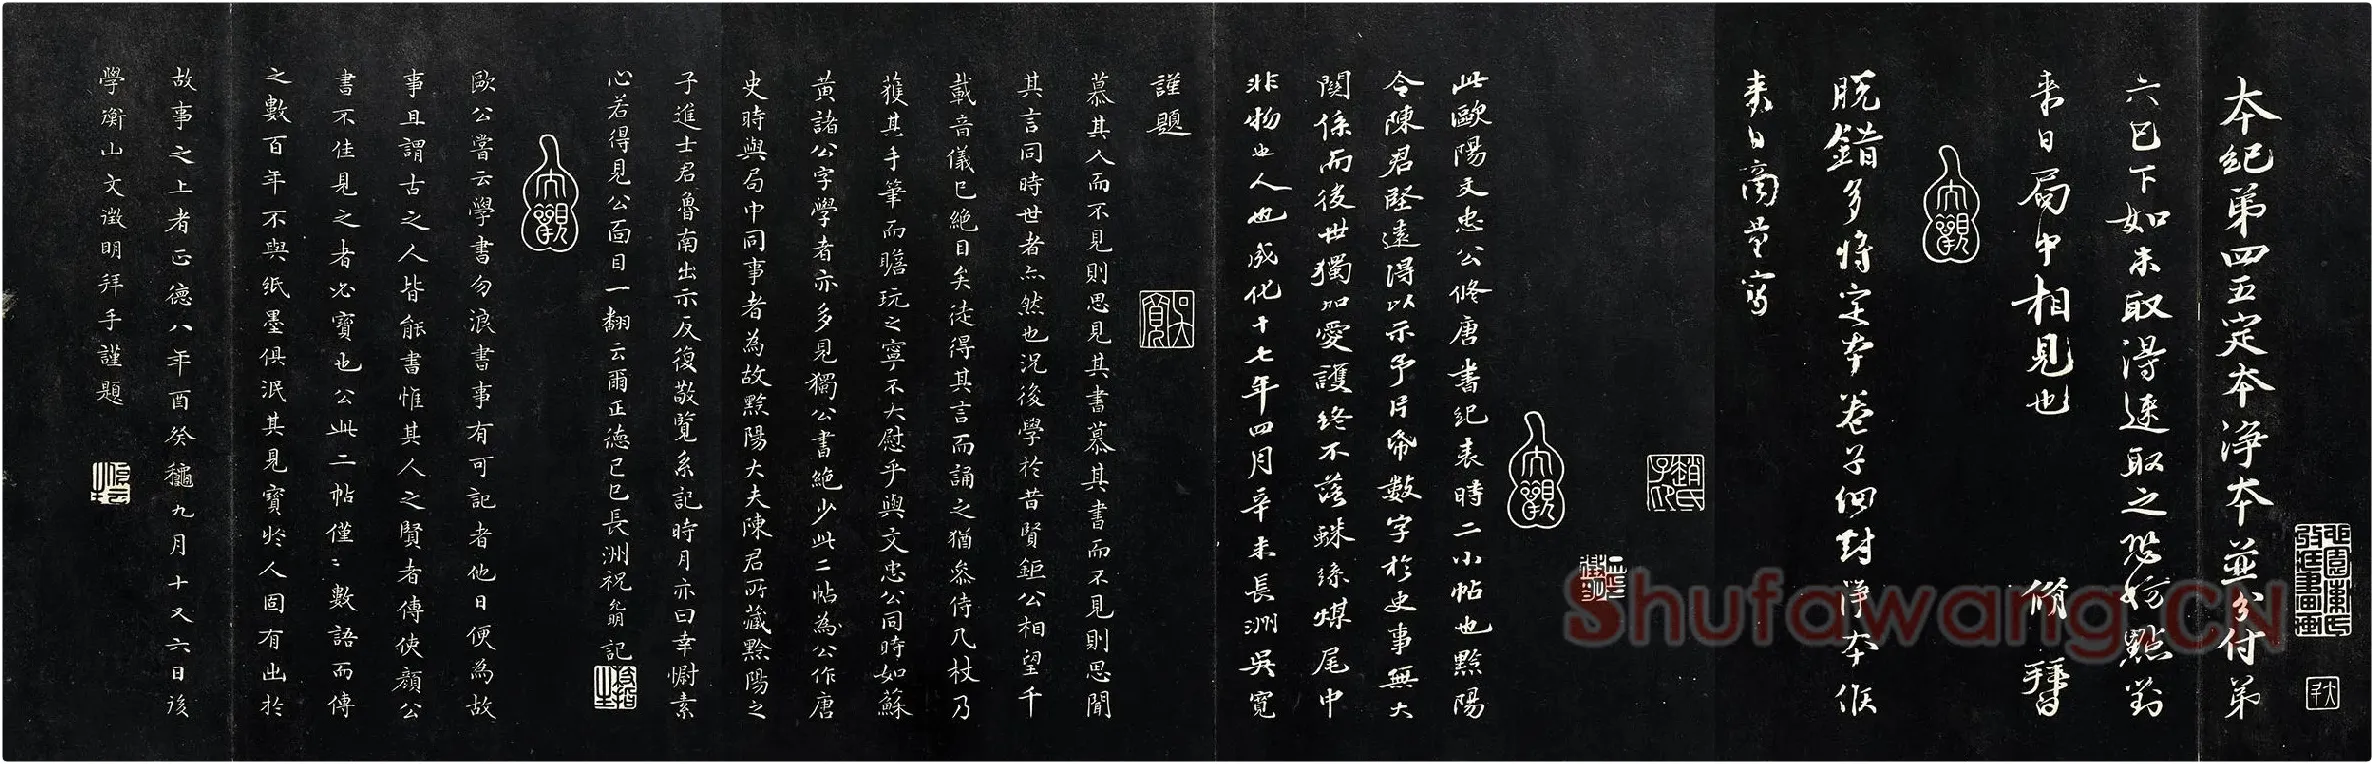 本紀第四五定本淨本並分付第
六已下如未取得速取之恐妨點對
來日局中相見也
脩 拜
脫錯多將定本卷子細對淨本候
來日商量寫
此歐陽文忠公脩唐書紀表時二小帖也黟陽
令陳君堅遠得以示予片紙數字於史事無大
關係而後世獨加愛護終不落蛛絲煤尾中
非物也人也成化十七年四月辛未長洲吳寬
謹題
慕其人而不見則思見其書慕其書而不見則思聞
其言同時世者亦然也況後學於昔賢鉅公相望千
載音儀已絕目矣徒得其言而誦之猶參侍几杖乃
獲其手筆而瞻玩之寧不大慰乎與文忠公同時如蘇
黃諸公字學者亦多見獨公書絕少此二帖為公作唐
史時與局中同事者為故黟陽大夫陳君所藏黟陽之
子進士君魯南出示反復敬覽系記時月亦曰幸慰素
心若得見公面目一翻云爾正德己巳長洲祝允明記
歐公嘗云學書勿浪書事有可記者他日便為故
事且謂古之人皆能書惟其人之賢者傳使顏公
書不佳見之者必寶也公此二帖僅二數語而傳
之數百年不與紙墨俱泯其見寶於人固有出於
故事之上者正德八年酉癸龝九月十又六日後
學衡山文徵明拜手謹題
Shufawang.CN